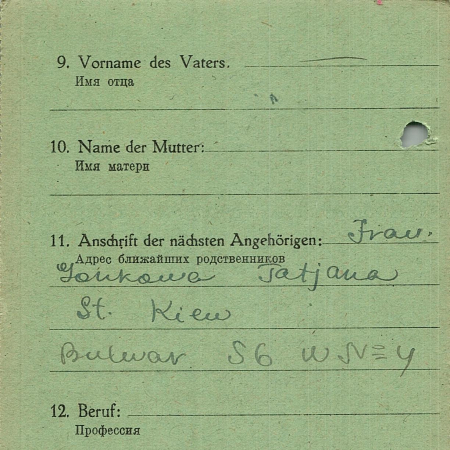 9. Vorname des Vaters.
Имя отца
10. Name der Mutter:
Имя матери
11. Anschrift der nächsten Angehörigen: Frau.
Адрес ближайших родственников
Tatjana
St. Kiew
Bulwar 56 W № 4
12. Beruf:
Профессия